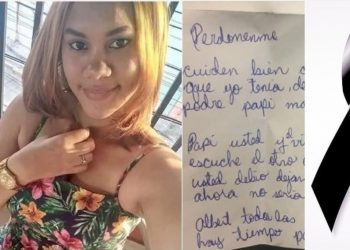 Perdonenme
cuiden bien
que yo tenia, de
padre papi ma
Papi usted y
escuche el otro
usted debio dejar
ahora no seria
Albert toda las
hay tiempo pa